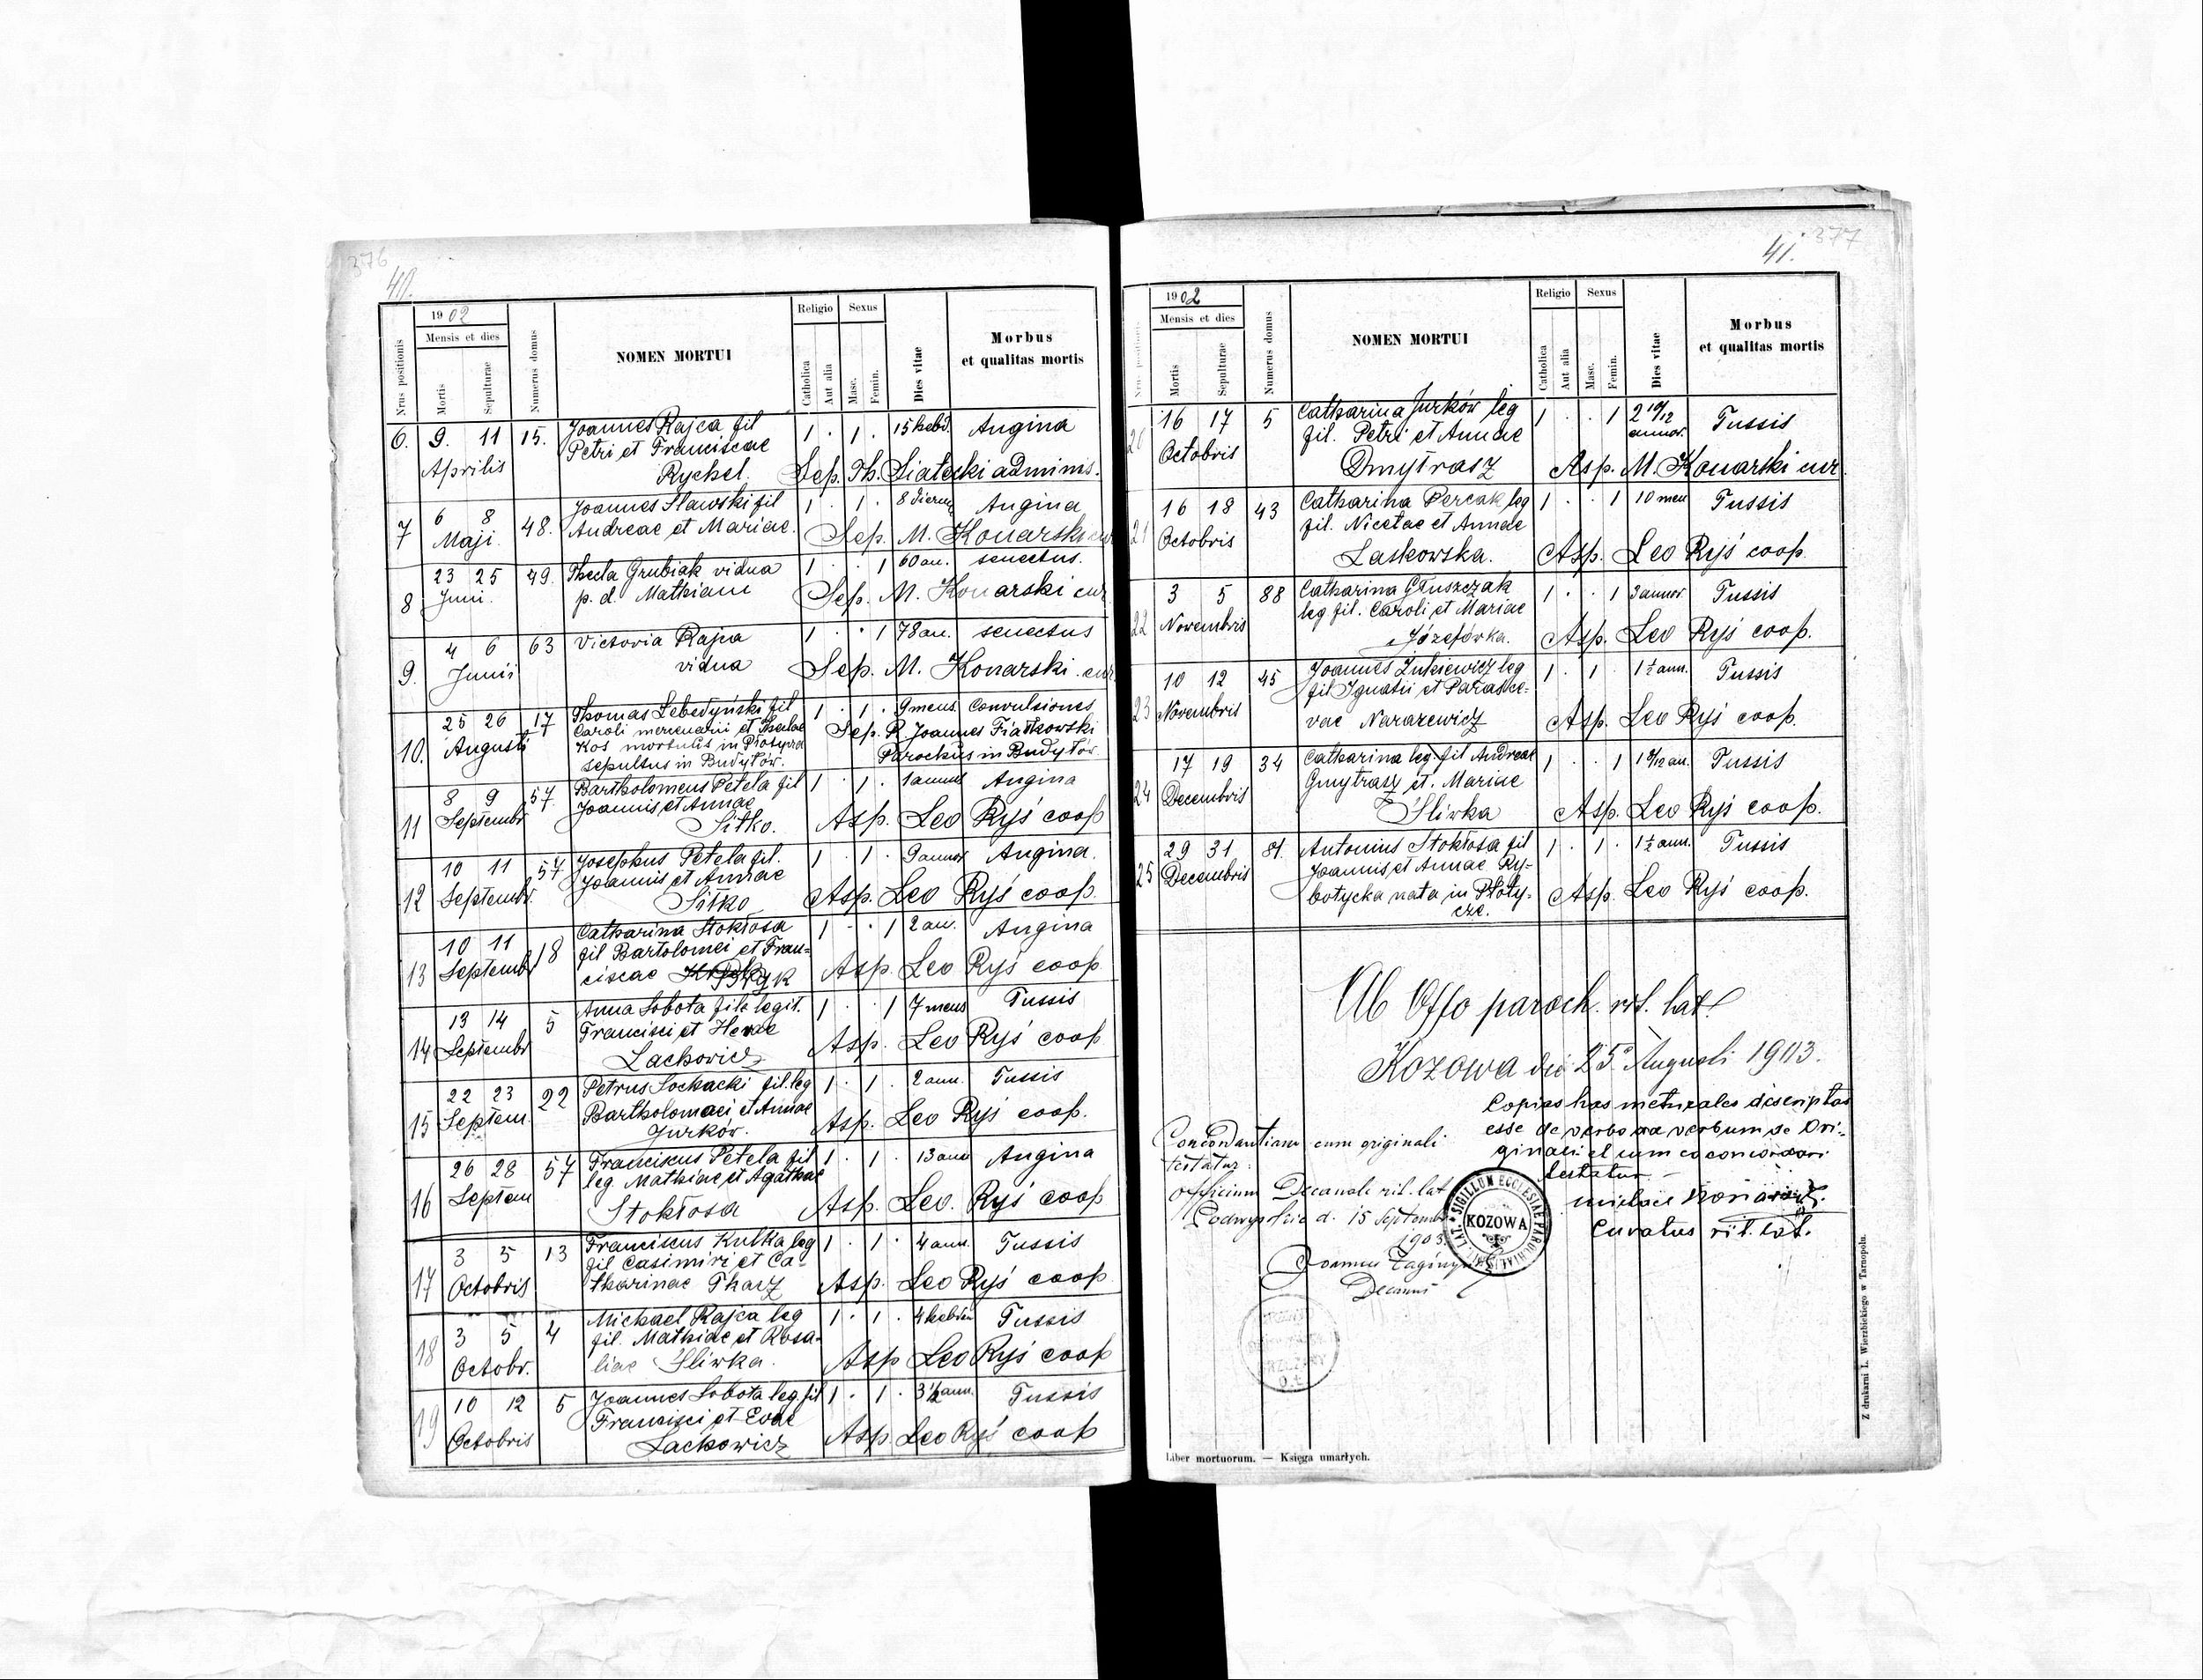 376
40.
1902
Mensis et dies
Religio Sexus
Nrus positionis Mortis Sepulturae Numerus domus NOMEN MORTUI Catholica Aut alia Masc. Femin. Dies vitae Morbus et qualitas mortis
6. 9. 11 15. Joannes Rajca fil 1 · 1 · 15 hebd. Angina
Aprilis Petri et Franciscae
Rychel Sep. Th. Siatecki adminis.
7 6 8 48. Joannes Slawski fil 1 · 1 · 8 dierum Angina
Maji Andreae et Mariae. Sep. M. Konarski cur
8 23 25 49. Thecla Grubiak vidua 1 · · 1 60 an. senectus.
Juni. p. d. Mathiam Sep. M. Konarski cur
9. 4 6 63 Victoria Rajca 1 · · 1 78 an. senectus
Junii vidua Sep. M. Konarski cur
10. 25 26 17 Thomas Lebedyński fil 1 · 1 · 9 mens Convulsiones
Augusti Caroli mercenarii et Theclae Sep. R Joannes Fiałkowski
Kos mortuus in Płotycza Parochus in Budyłów
sepultus in Budyłów.
11 8 9 57 Bartholomeus Petela fil 1 · 1 · 1 annus Angina
Septembr Joannis et Annae
Sitko. Asp. Leo Ryś coop
12 10 11 57 Josephus Petela fil. 1 · 1 · 9 annor Angina.
Septembr. Joannis et Annae
Sitko Asp. Leo Ryś coop.
13 10 11 18 Catharina Stokłosa 1 · · 1 2 an. Angina
Septembr fil Bartolomei et Fran-
ciscae Asp. Leo Ryś coop
14 13 14 5 Anna Sobota fila legit. 1 · · 1 7 mens Tussis
Septembr Francisci et Hevae
Lachowicz Asp. Leo Ryś coop
15 22 23 22 Petrus Sochacki fil. leg 1 · 1 · 2 ann. Tussis
Septem. Bartholomaei et Annae
Jurków. Asp. Leo Ryś coop.
16 26 28 57 Franciscus Petela fil 1 · 1 · 13 ann Angina
Septem leg Mathiae et Agathae
Stokłosa Asp. Leo. Ryś coop
17 3 5 13 Franciscus Kulka leg 1 · 1 · 4 ann. Tussis
Octobris fil Casimiri et Ca-
tharinae Tharz Asp. Leo Ryś coop
18 3 5 4 Michael Rajca leg 1 · 1 · Tussis
Octobr. fil. Mathiae et Rosa-
liae Śliwka. Asp Leo Ryś coop
19 10 12 5 Joannes Sobota leg fil 1 · 1 · 3 1/2 ann. Tussis
Octobris Francisci et Evae
Lachowicz Asp Leo Ryś coop
377
41.
1902
Mensis et dies
Religio Sexus
Mortis Sepulturae Numerus domus NOMEN MORTUI Catholica Aut alia Masc. Femin. Dies vitae Morbus et qualitas mortis
20 16 17 5 Catharina Jurków leg 1 · · 1 2 10/12 annor. Tussis
Octobris fil. Petri et Annae
Dmytrasz Asp. M. Konarski cur.
21 16 18 43 Catharina Percak leg 1 · · 1 10 men Tussis
Octobris fil. Nicetae et Annae
Laskowska. Asp. Leo Ryś coop.
22 3 5 88 Catharina Głuszczak 1 · · 1 3 annor. Tussis
Novembris leg fil. Caroli et Mariae
Józefówka. Asp. Leo Ryś coop.
23 10 12 45 Joannes Żukiewicz leg 1 · 1 · 1½ ann. Tussis
Novembris fil Ignatii et Paraske-
vae Nararewicz Asp. Leo Ryś coop.
24 17 19 34 Catharina leg. fil Andreae 1 · · 1 Tussis
Decembris Gmytrasz et. Mariae
Śliwka Asp. Leo Ryś coop.
25 29 31 81. Antonius Stokłosa fil 1 · 1 · 1½ ann. Tussis
Decembris Joannis et Annae Ry-
botycka nata in Płoty-
cze. Asp. Leo Ryś coop.
Ab Offo paroch. rit. lat
Kozowa die 25 Augusti 1903.
Copias has metricales descriptas
esse de verbo ad verbum se Ori-
ginali et cum eo concordari
testatur
Curatus rit. lat.
Concordantiam cum originali
testatur:
Officium Decanale rit. lat
Podwysokie d. 15 Septemb
1903.
Decanus
SIGILLUM ECCLESIAE PAROCHIALIS LAT.
KOZOWA
Liber mortuorum. — Księga umarłych.
Z drukarni L. Wierzbickiego w Tarnopolu.